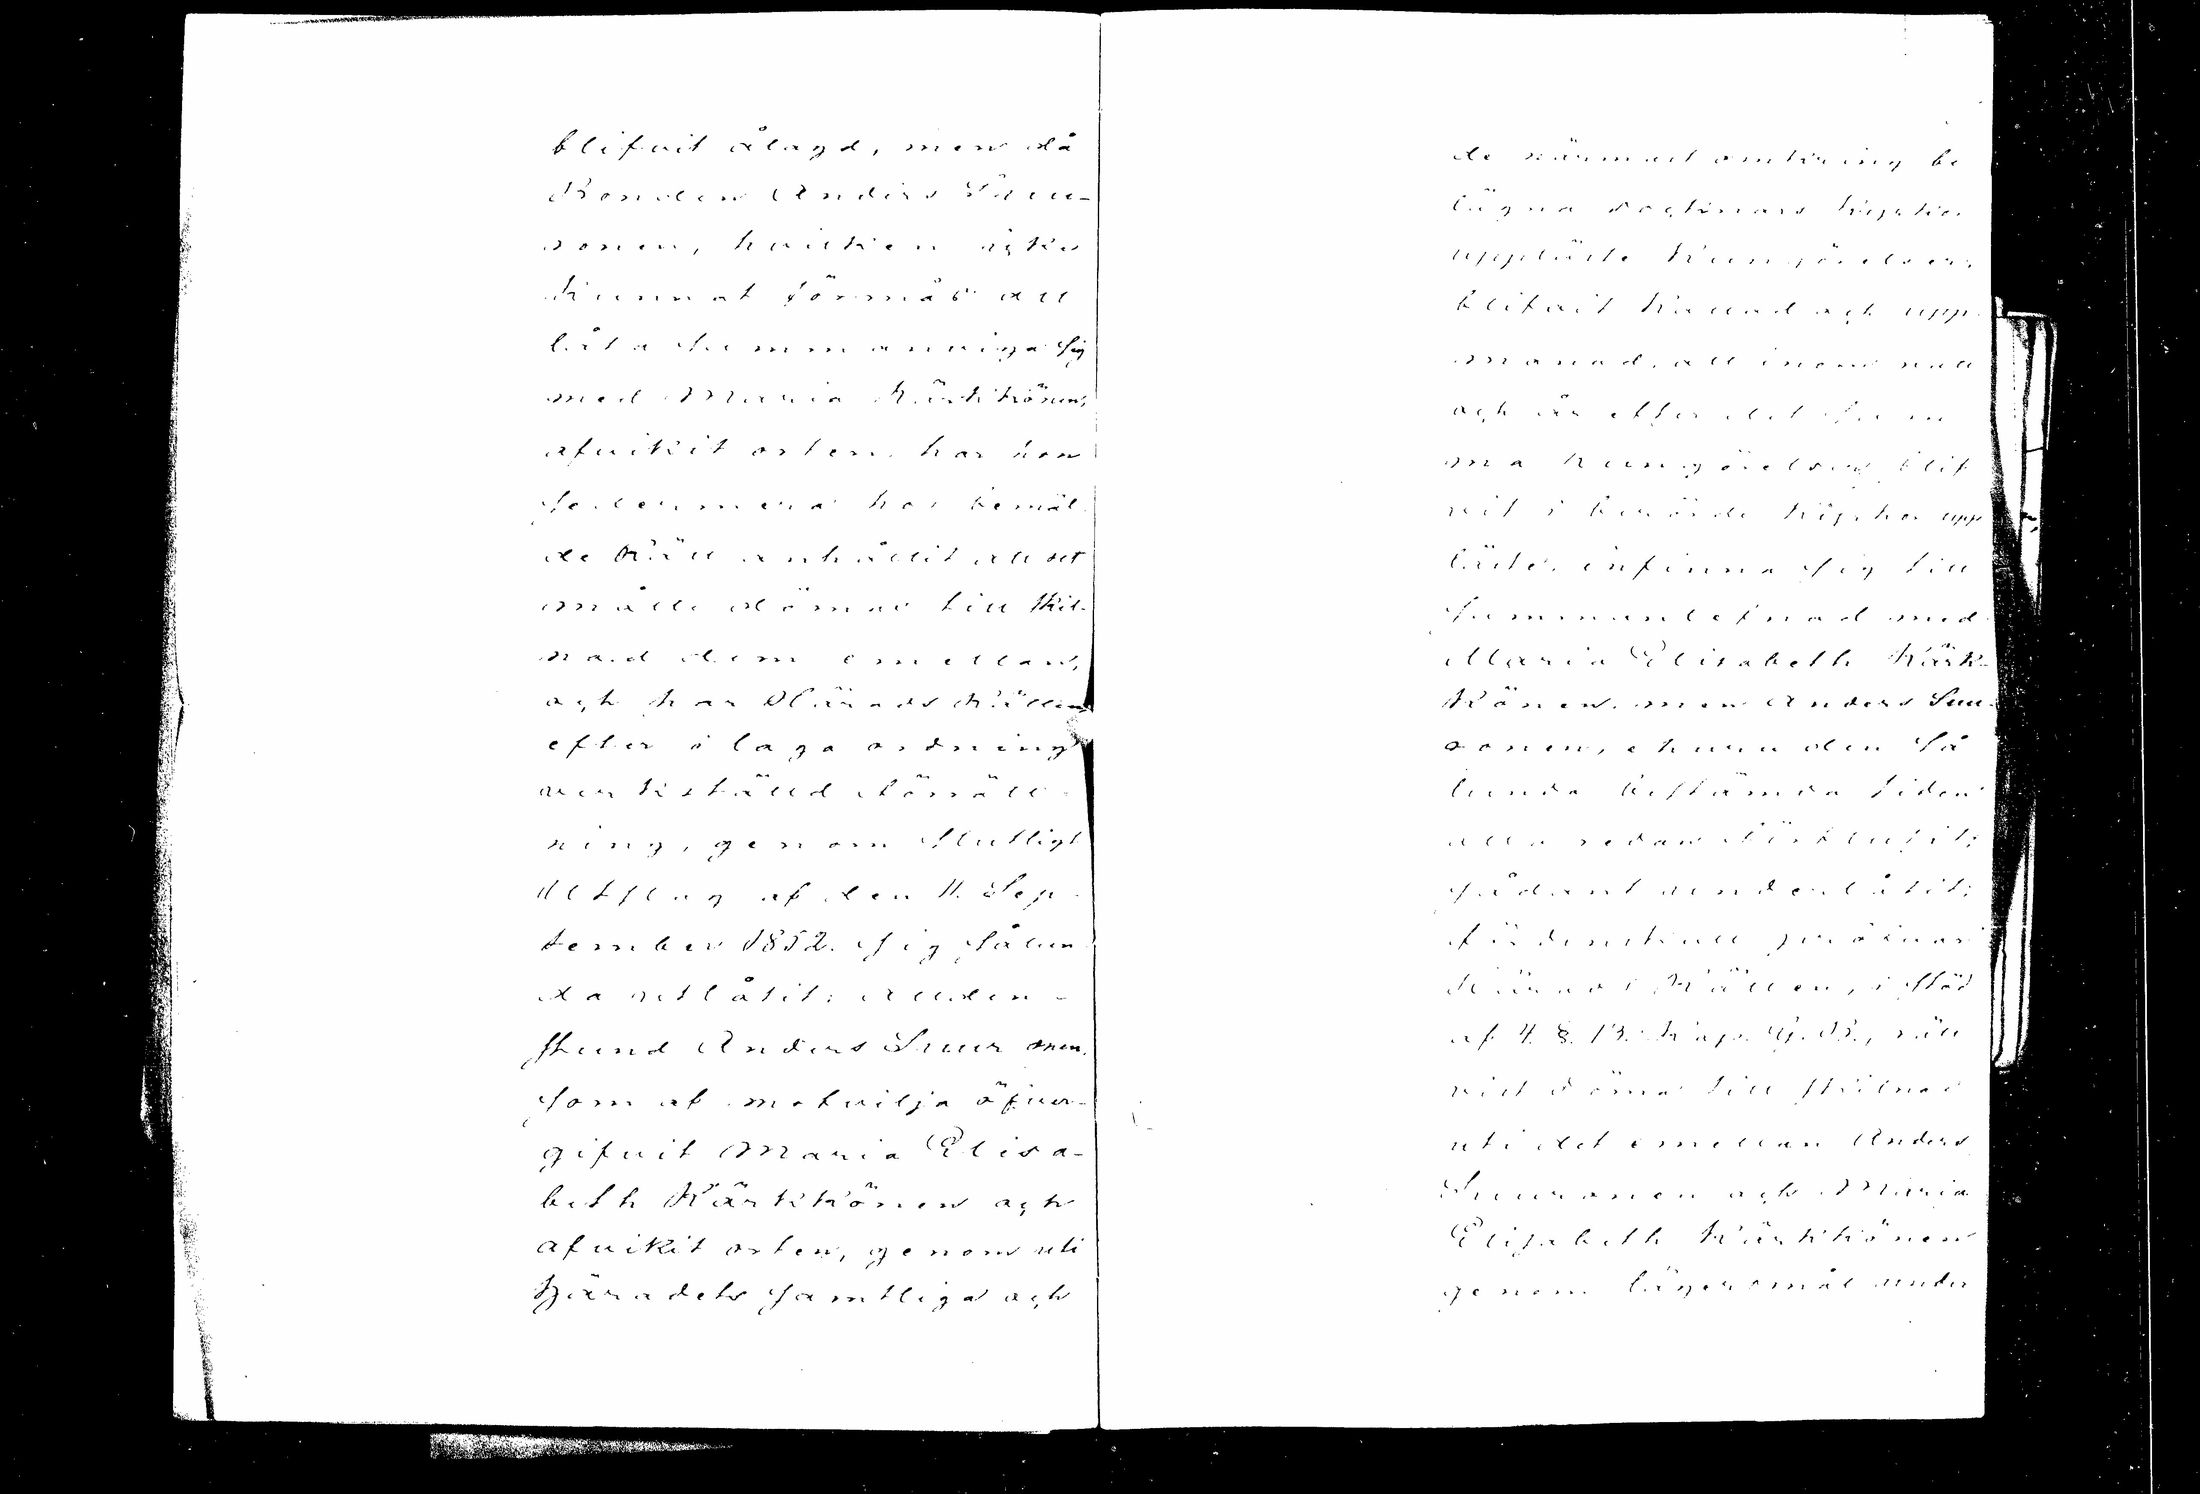 blifvit ålagd, men då
Bonden Anders Suu-
ronen, hvilken icke
kunnat förmås att
låta sammanviga sig
med Maria Kärkkönen,
afvikit orten, har hon
sedermera hos bemäl-
de Rätt anhållit att det
måtte dömas till skil-
nad dem emellan,
och har Härads Rätten
efter i laga ordning
verkställd förrätt-
ning, genom slutligt
Utslag af den 11. Sep-
tember 1852. sig sålun-
da utlåtit: Allden-
stund Anders Suuronen,
som af motvilja öfver-
gifvit Maria Elisa-
beth Kärkkönen och
afvikit orten, genom uti
Häradets samtliga och
de närmast omkring be
lägna socknars kyrkor
uppläste kungörelser,
blifvit kallad och upp-
manad, att inom natt
och år efter det sam
ma kungörelser blif
vit i berörde kyrkor upp
läste, infinna sig till
sammanlefnad med
Maria Elisabeth Kärk-
könen, men Anders Suu-
ronen, ehuru den så
lunda bestämda tiden
alla redan förflutit,
sådant underlåtit;
fördenskull pröfvar
Härads Rätten, i stöd
af 4. §. 13. Kap. G. B., rätt
vist döma till skilnad
uti det emellan Anders
Suuronen och Maria
Elisabeth Kärkkönen
genom lägersmål under